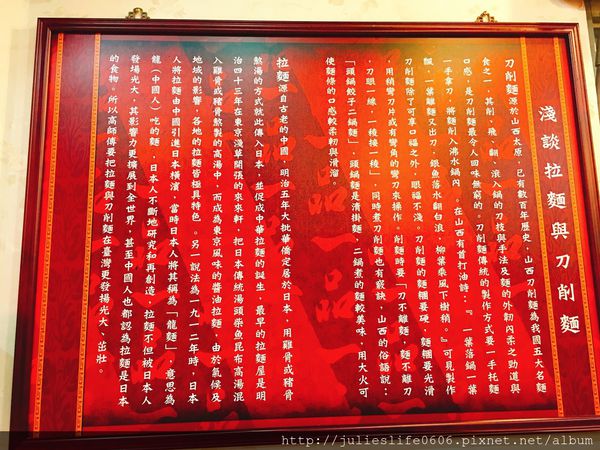 淺談拉麵與刀削麵
刀削麵源於山西太原，已有數百年歷史，山西刀削麵為我國五大名麵
食之一，其削、飛、翻、滾入鍋的刀技與手法及麵的外韌內柔之勁道與
口感，是刀削麵最令人回味無窮的。刀削麵傳統的製作方式要一手托麵
一手拿刀，將麵削入沸水鍋內。在山西有首打油詩：『一葉落鍋一葉
飄，一葉離麵又出刀，銀魚落水翻白浪，柳葉乘風下樹梢。』可見製作
刀削麵除了可享口福之外，眼福不淺。刀削麵的麵糰要硬，麵糰要光滑
，用銷彎刀片或有彎角的彎刀來操作。削麵時要「刀不離麵，麵不離刀
，刀眼一線，一稜接一稜」，同時煮刀削麵也有竅訣，山西的俗諺說：
「頭鍋餃子二鍋麵」，頭鍋麵是清掛麵，二鍋煮的麵較美味，用大火可
使麵條的口感較柔韌與滑溜。
拉麵源自古老的中國，明治五年大批華僑定居於日本，用雞骨或豬骨
熬湯的方式就此傳入日本，並促成中華拉麵的誕生，最早的拉麵屋是明
治四十三年在東京淺草開張的來來軒，把日本傳統湯頭柴魚昆布高湯混
入雞骨或豬骨熬製的高湯中，而成為東京風味的醬油拉麵，由於氣候及
地域的影響，各地的拉麵皆極具特色。另一說法為一九一二年時，日本
人將拉麵由中國引進日本橫濱，當時日本人將其稱為「龍麵」，意思為
龍（中國人）吃的麵，日本人不斷地研究和再創造，拉麵不但被日本人
發揚光大，其影響力更擴展到全世界，甚至中國人也都認為拉麵是日本
的食物。所以高師傅要把拉麵與刀削麵在臺灣更發揚光大、茁壯。
http://julieslife0606.pixnet.net/album